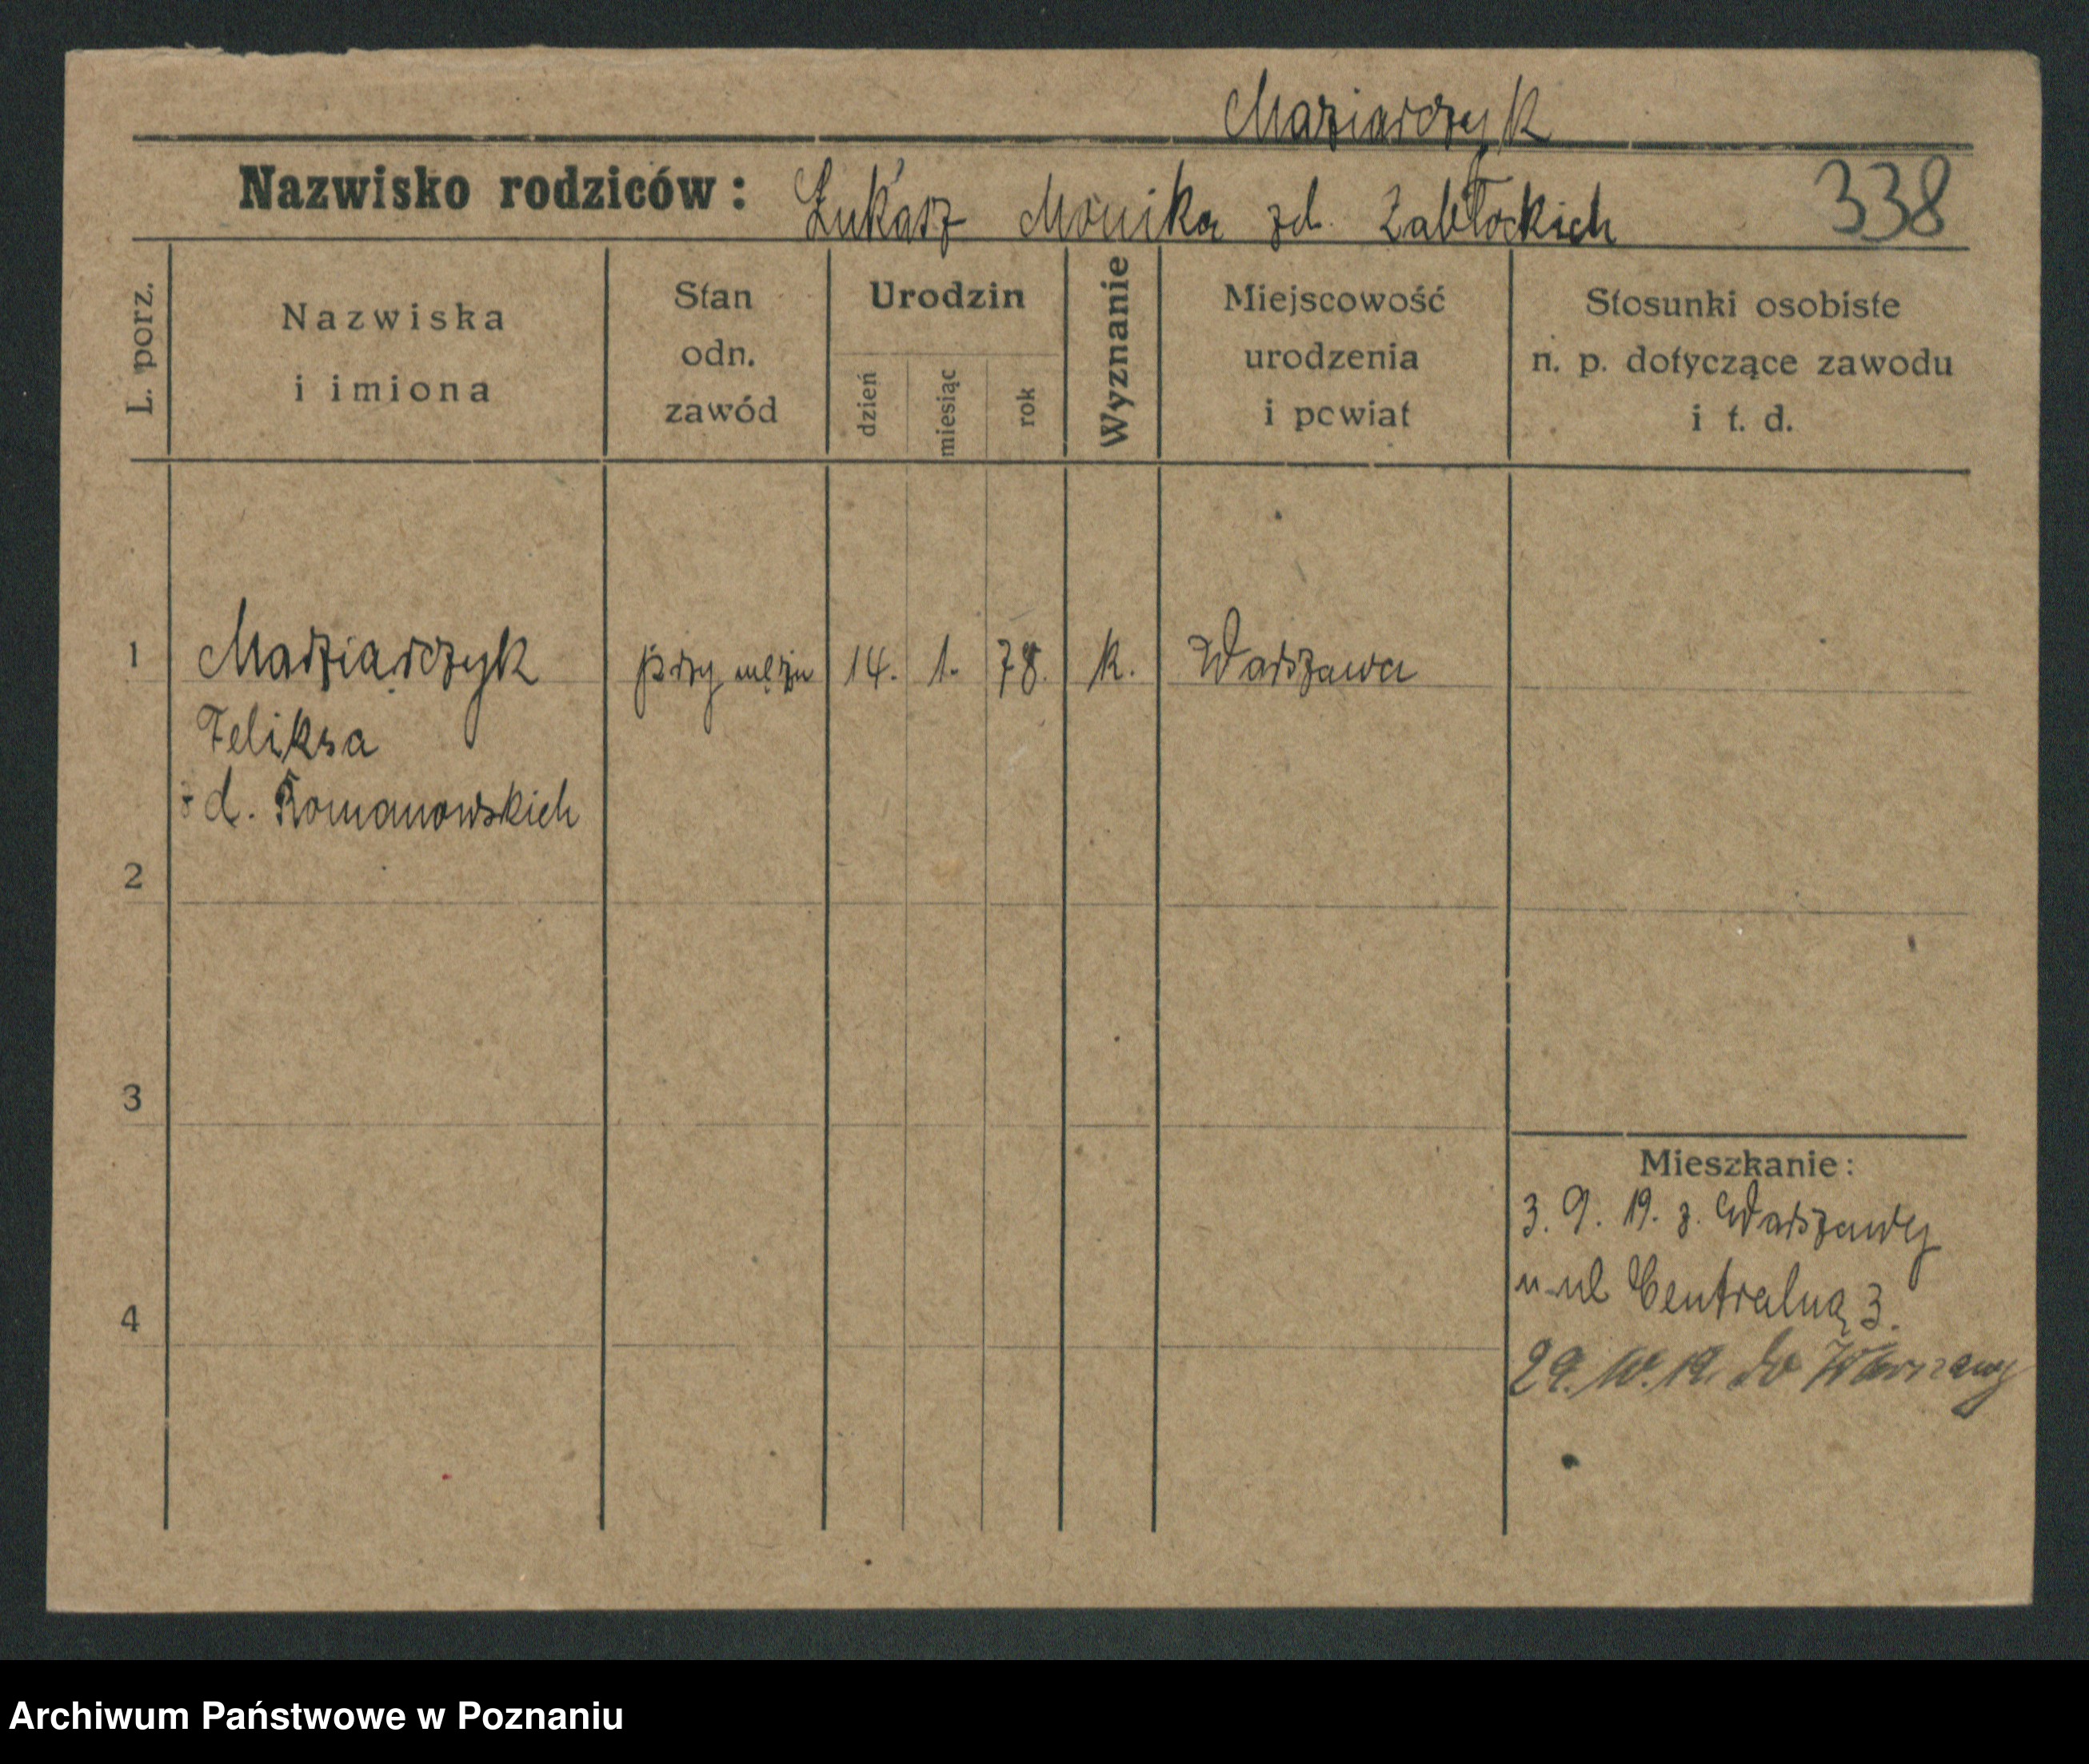 Maziarczyk
Nazwisko rodziców: Łukasz Monika zd. Zabłockich 338
L. porz.
Nazwiska
i imiona
Stan
odn.
zawód
Urodzin
dzień
miesiąc
rok
Wyznanie
Miejscowość
urodzenia
i powiat
Stosunki osobiste
n. p. dotyczące zawodu
i t. d.
1 Maziarczyk przy mężu 14. 1. 78. k. Warszawa
Feliksa
zd. Romanowskich
2
3
Mieszkanie:
3. 9. 19. z. Warszawy
ul Centralną 3.
4
29. 10. 19. do Warszawy
Archiwum Państwowe w Poznaniu